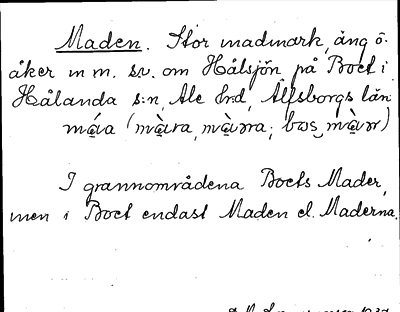 Maden. Stor madmark, äng o.
åker m m. sv. om Hålsjön på Boet i
Hålanda s:n, Ale hrd, Älfsborgs län
I grannområdena Boets Mader,
men i Boet endast Maden el. Maderna.